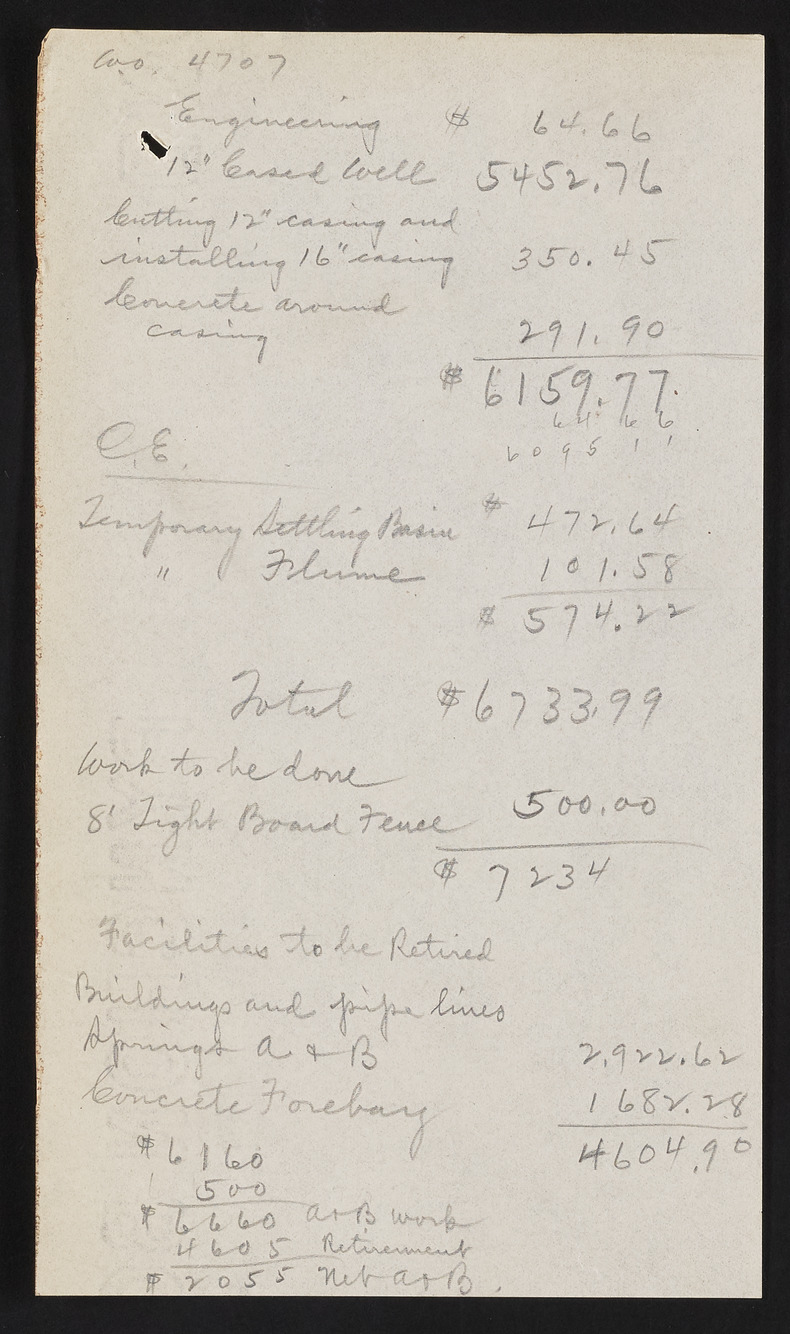 W.O. 4707
Engineering $ 64.66
12" Cased Well 5452.76
Cutting 12" casing and
installing 16" casing 350.45
Concrete around
casing 291.90
$ 6159.77
64 66
6095 11
O.E.
Temporary Settling Basin $ 472.64
" Flume 101.58
$ 574.22
Total $6733.99
Work to be done
8' Tight Board Fence 500.00
$ 7234
Facilities to be Retired
Buildings and pipe lines
Springs A & B 2,922.62
Concrete Forebay 1682.28
4604.90
$6160
500
$ 6660 A & B work
4605 Retirement
$ 2055 Net A & B.